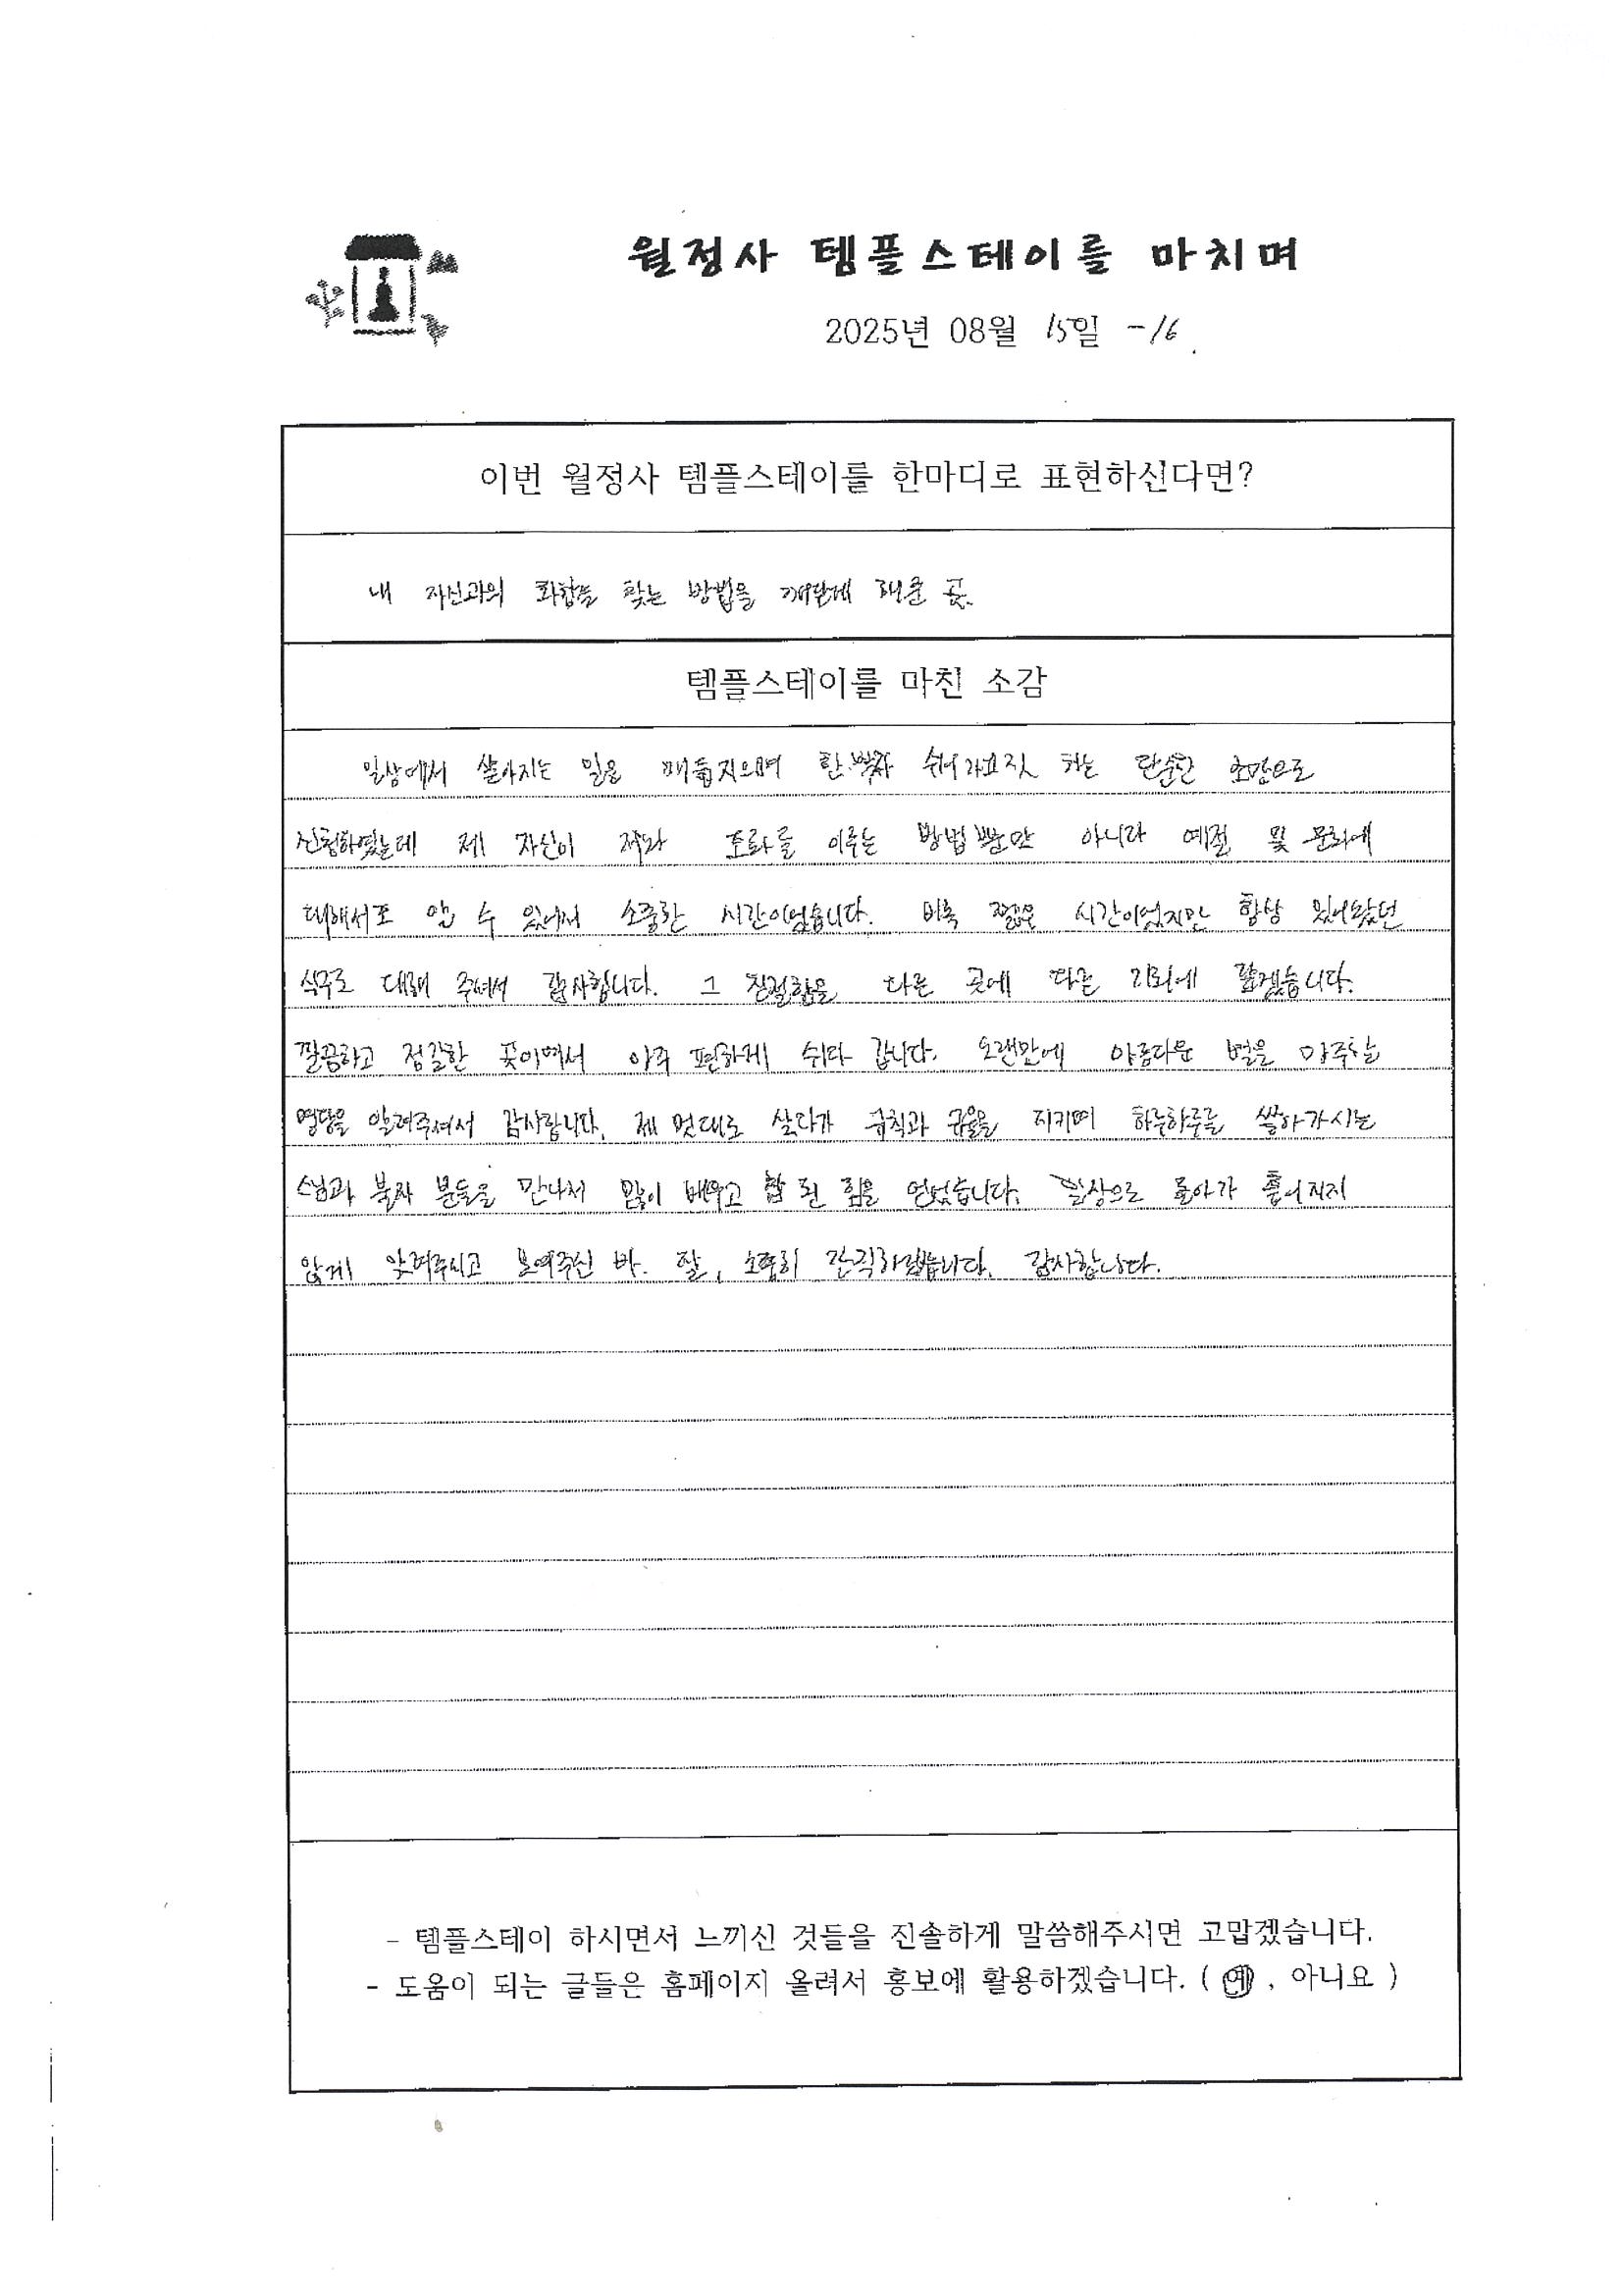 월정사 템플스테이를 마치며
2025년 08월 15일 -16.
이번 월정사 템플스테이를 한마디로 표현하신다면?
내 자신과의 화합을 찾는 방법을 깨닫게 해준 곳.
템플스테이를 마친 소감
일상에서 쌓아지는 일을 매듭지으며 한 박자 쉬어가고자 하는 단순한
신청하였는데 제 자신이 저와 조화를 이루는 방법 뿐만 아니라 예절 및 문화에
대해서도 알 수 있어서 소중한 시간이었습니다. 비록 짧은 시간이었지만 항상 있어왔던
식구로 대해 주셔서 감사합니다. 그 친절함을 다른 곳에 다른 기회에 갚겠습니다.
깔끔하고 정갈한 곳이여서 아주 편하게 쉬다 갑니다. 오랜만에 아름다운 별을 마주할
명당을 알려주셔서 감사합니다. 제 멋대로 살다가 규칙과 규율을 지키며 하루하루를 쌓아가시는
스님과 불자 분들을 만나서 많이 배우고 참 된 힘을 얻었습니다. 일상으로 돌아가 흩어지지
않게 알려주시고 보여주신 바. 잘, 소중히 간직하겠습니다. 감사합니다.
- 템플스테이 하시면서 느끼신 것들을 진솔하게 말씀해주시면 고맙겠습니다.
- 도움이 되는 글들은 홈페이지 올려서 홍보에 활용하겠습니다. ( 예 , 아니요 )